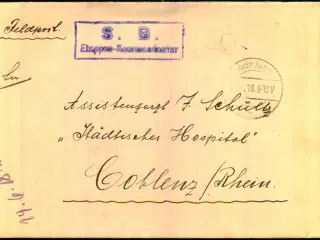 Feldpost.
S. B.
Etappen-Kommandantur
Assistenzarzt J. Schultz
„Städtisches Hospital"
Coblenz/Rhein.